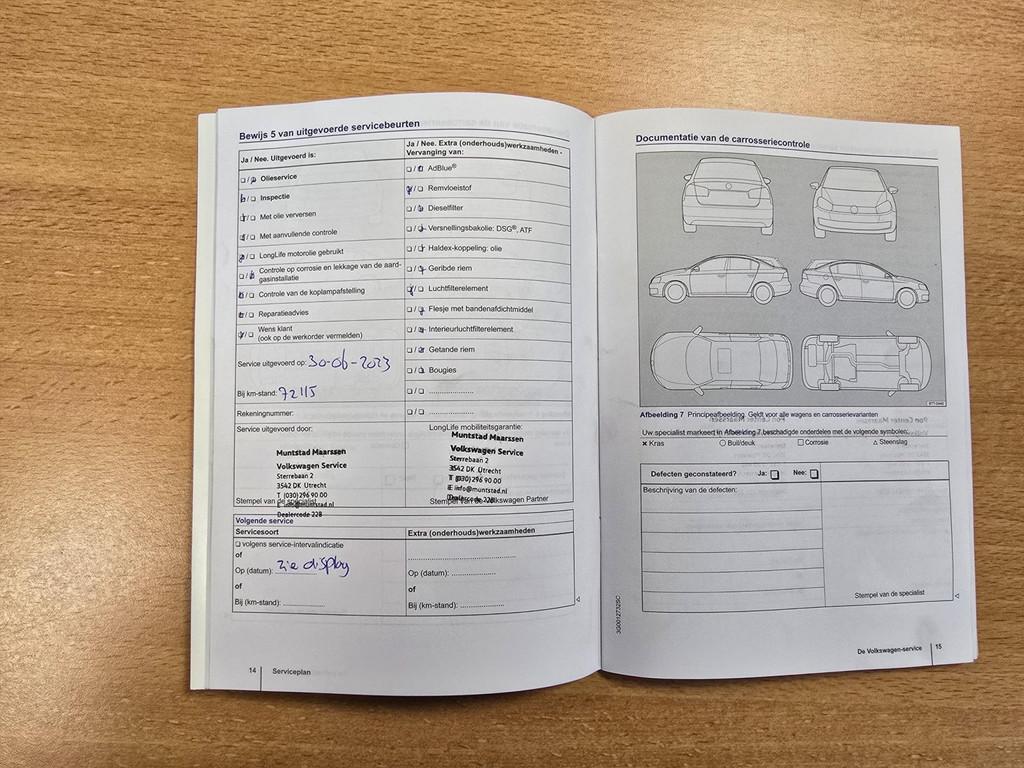 Bewijs 5 van uitgevoerde servicebeurten
Ja / Nee. Uitgevoerd is:
❑ / ❑ Olieservice
❑ / ❑ Inspectie
❑ / ❑ Met olie verversen
❑ / ❑ Met aanvullende controle
❑ / ❑ LongLife motorolie gebruikt
❑ / ❑ Controle op corrosie en lekkage van de aard-
gasinstallatie
❑ / ❑ Controle van de koplampafstelling
❑ / ❑ Reparatieadvies
❑ / ❑ Wens klant
(ook op de werkorder vermelden)
Service uitgevoerd op: 30-06-2023
Bij km-stand: 72115
Rekeningnummer:
Service uitgevoerd door:
Muntstad Maarssen
Volkswagen Service
Sterrebaan 2
3542 DK Utrecht
T (030)296 90 00
Stempel van de specialist
E info@muntstad.nl
Dealercode 228
Ja / Nee. Extra (onderhouds)werkzaamheden -
Vervanging van:
❑ / ❑ AdBlue®
❑ / ❑ Remvloeistof
❑ / ❑ Dieselfilter
❑ / ❑ Versnellingsbakolie: DSG®, ATF
❑ / ❑ Haldex-koppeling: olie
❑ / ❑ Geribde riem
❑ / ❑ Luchtfilterelement
❑ / ❑ Flesje met bandenafdichtmiddel
❑ / ❑ Interieurluchtfilterelement
❑ / ❑ Getande riem
❑ / ❑ Bougies
❑ / ❑ ....................
❑ / ❑ ....................
LongLife mobiliteitsgarantie:
Muntstad Maarssen
Volkswagen Service
Sterrebaan 2
3542 DK Utrecht
T (030)296 90 00
E info@muntstad.nl
Stempel van de Volkswagen Partner
Dealercode 228
Volgende service
Servicesoort
❑ volgens service-intervalindicatie
of
Op (datum): zie display
of
Bij (km-stand): ....................
Extra (onderhouds)werkzaamheden
....................
Op (datum): ....................
of
Bij (km-stand): ....................
14 Serviceplan
Documentatie van de carrosseriecontrole
Afbeelding 7 Principeafbeelding. Geldt voor alle wagens en carrosserievarianten
Uw specialist markeert in Afbeelding 7 beschadigde onderdelen met de volgende symbolen:
× Kras ○ Buil/deuk ❑ Corrosie △ Steenslag
Defecten geconstateerd? Ja: ❑ Nee: ❑
Beschrijving van de defecten:
Stempel van de specialist
3G0012732SC
De Volkswagen-service 15